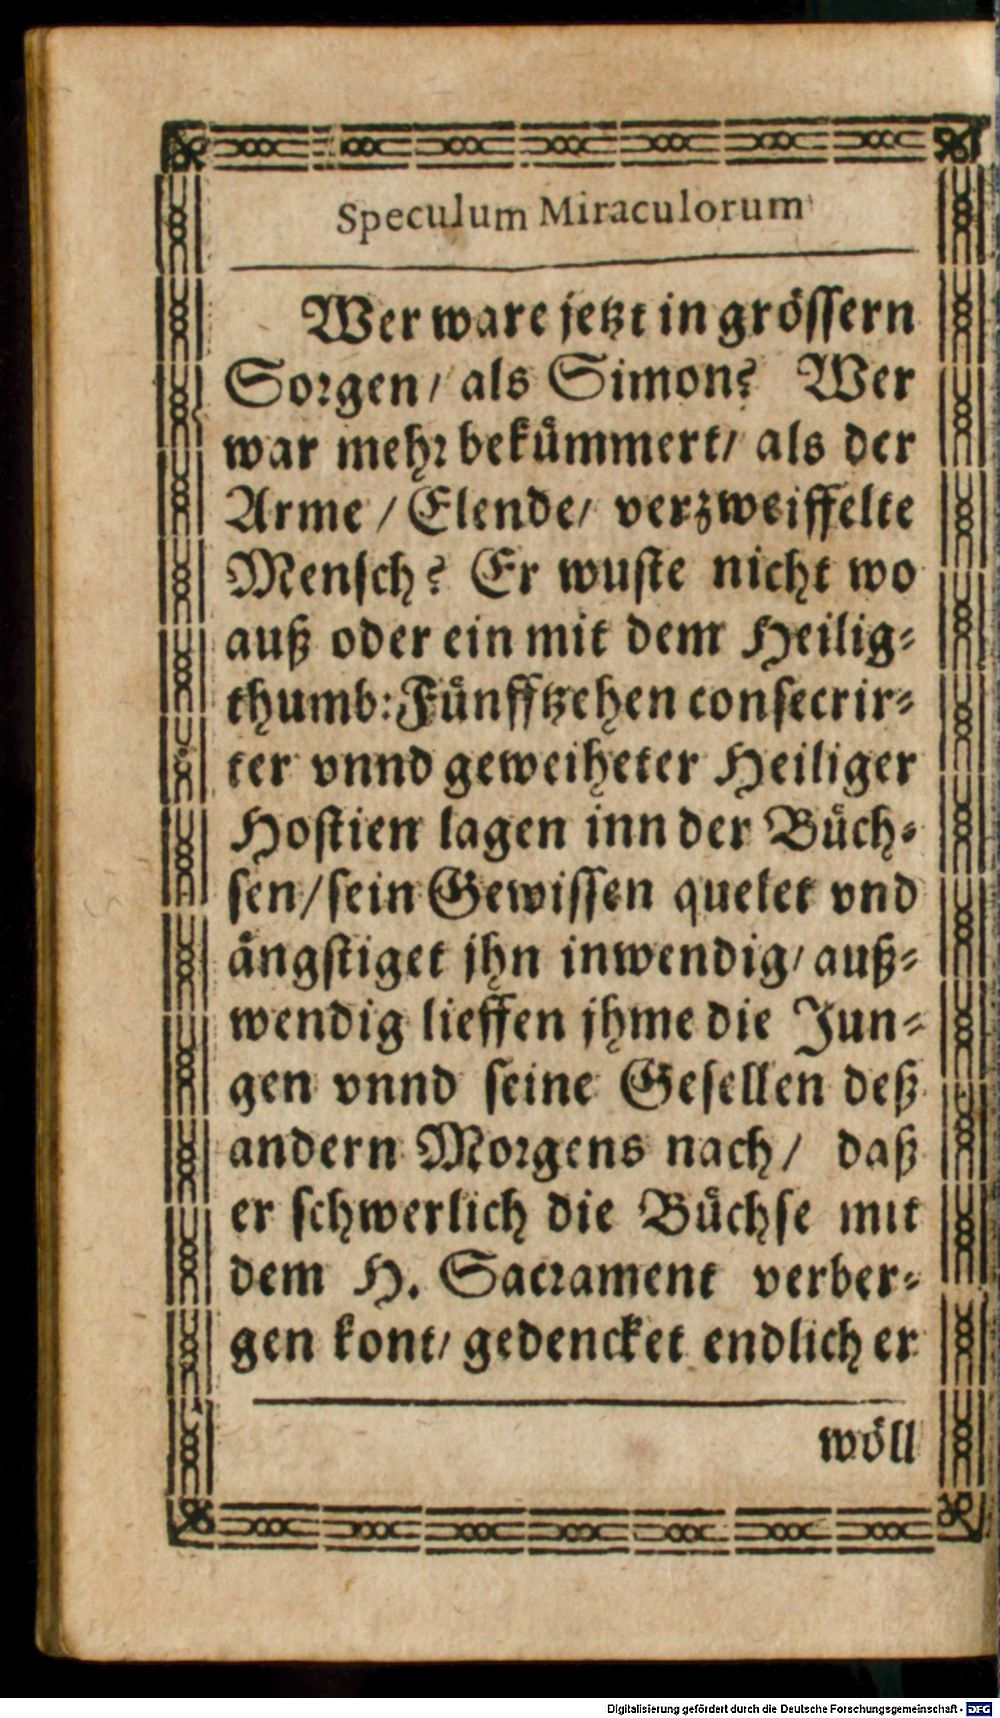 Speculum Miraculorum
Wer ware jetzt in grössern
Sorgen/ als Simon? Wer
war mehr bekümmert/ als der
Arme / Elende/ verzweiffelte
Mensch? Er wuste nicht wo
auß oder ein mit dem Heilig-
thumb: Fünfftzehen consecrir-
ter vnnd geweiheter Heiliger
Hostien lagen inn der Büch-
sen/ sein Gewissen quelet vnd
ängstiget jhn inwendig/ auß-
wendig lieffen jhme die Jun-
gen vnnd seine Gesellen deß
andern Morgens nach/ daß
er schwerlich die Büchse mit
dem H. Sacrament verber-
gen kont/ gedencket endlich er
wöll
Digitalisierung gefördert durch die Deutsche Forschungsgemeinschaft - DFG